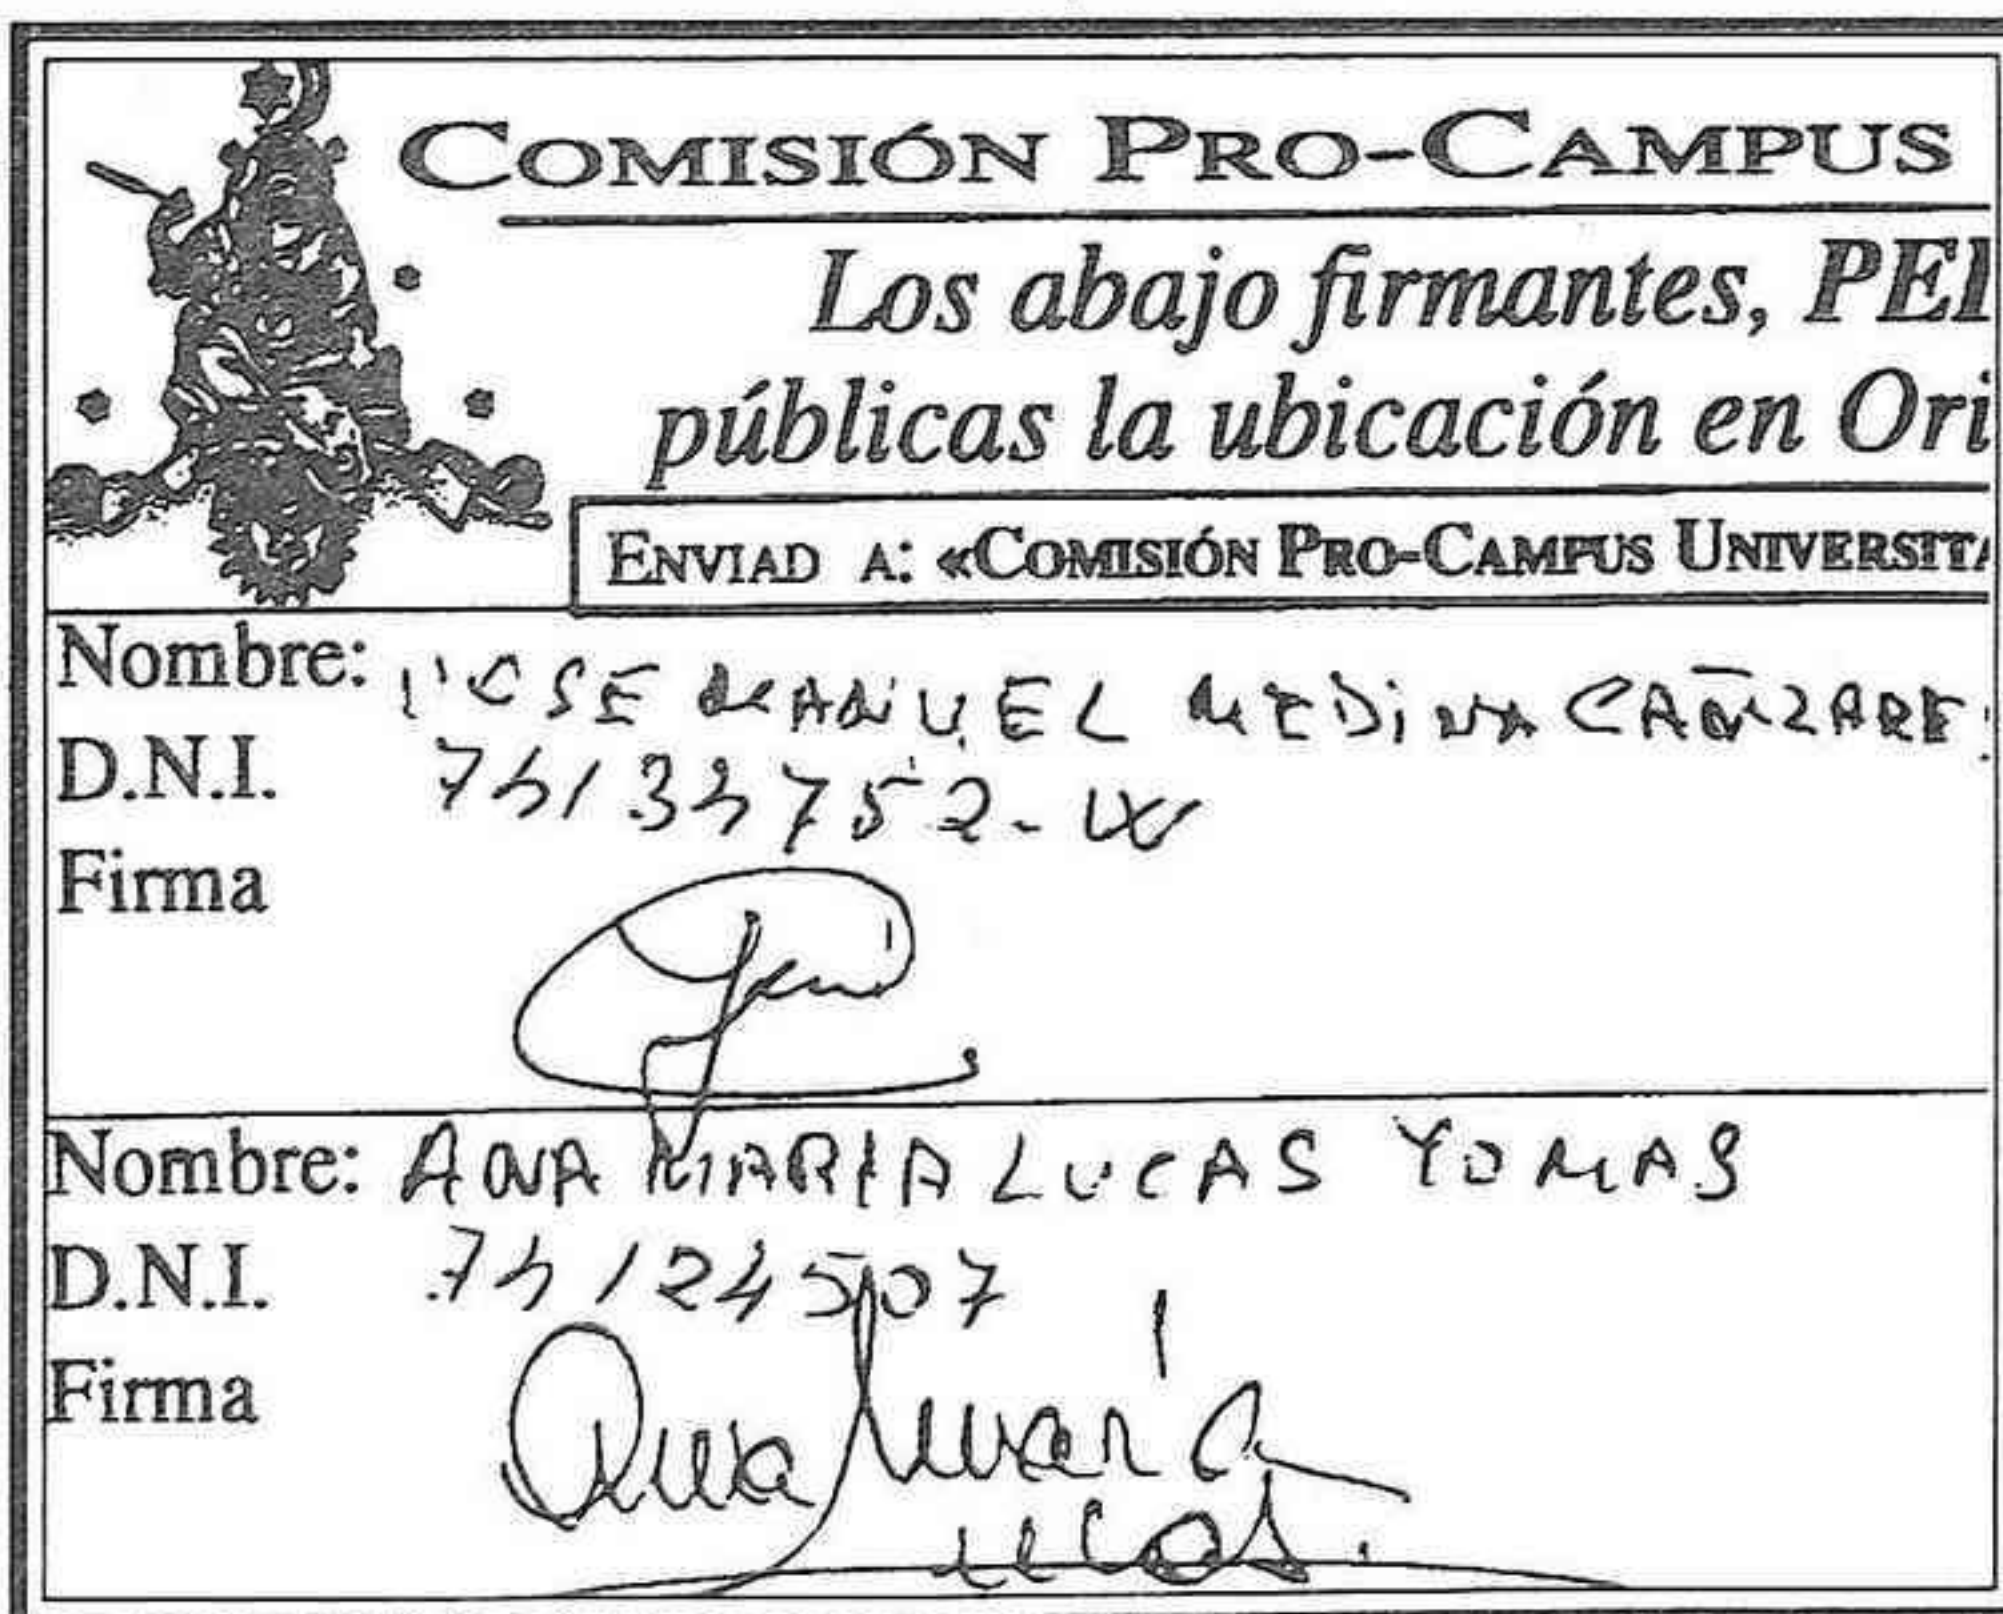 COMISIÓN PRO-CAMPUS
Los abajo firmantes, PE
públicas la ubicación en Ori
ENVIAD A: «COMISIÓN PRO-CAMPUS UNIVERSITA
Nombre: JOSE MANUEL MEDINA CAÑIZARES
D.N.I.
Firma
Nombre: ANA MARIA LUCAS TOMAS
D.N.I. 74124507
Firma Ana Maria
Lucas.